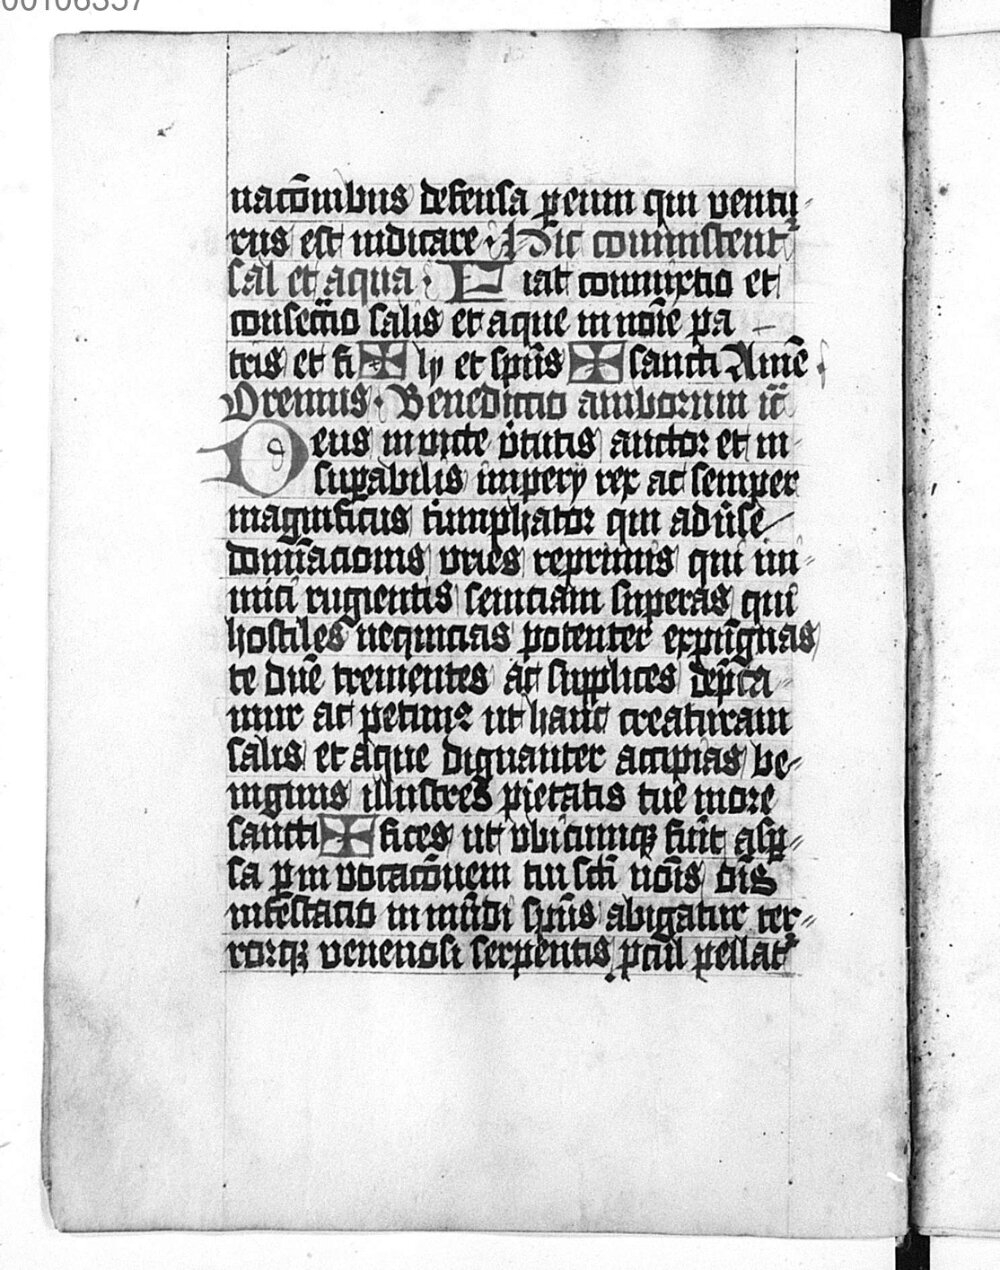 00106357
nacōnibus defensa p eum qui ventu⸗
rus est iudicare · Hic commisceat᷑
sal et aqua · Fiat commixtio et
consecc̄io salis et aque in noīe pa
tris et fi ✠ lÿ et sp̄us ✠ sancti Amē
Oremus · Benedictio amborum
Deus inuicte v̄tutis auctor et in⸗
sup̱abilis imperÿ rex ac semper
magnificus t̄umphator qui adūse
domīacionis vires reprimis qui ini⸗
mici rugientis seuiciam superas qui
hostiles nequicias potenter expūgnas
te dn̄e trementes ac supplices dep̄ca⸗
mur ac petimꝰ ut hanc creaturam
salis et aque dignanter accipias be⸗
nignus illustres pietatis tue more
sancti ✠ fices ut vbicumqꝫ fūit asp̱⸗
sa p̱ in vocacōnem tui sc̄i nōis oīs
infestacio in mūdi sp̄us abigatur ter⸗
rorqꝫ venenosi serpentis p̱cul pellat᷑